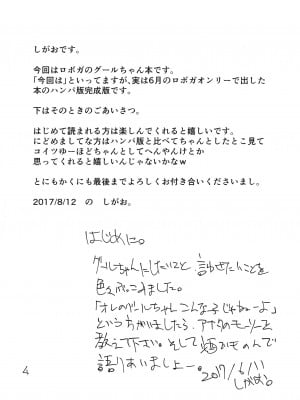 しがおです。
今回はロボガのグールちゃん本です。
「今回は」といってますが、実は6月のロボガオンリーで出した
本のハンパ版完成版です。
下はそのときのごあいさつ。
はじめて読まれる方は楽しんでくれると嬉しいです。
にどめましてな方はハンパ版と比べてちゃんとしたとこ見て
コイツゆーほどちゃんとしてへんやんけとか
思ってくれると嬉しいんじゃないかなw
とにもかくにも最後までよろしくお付き合いくださいまし。
2017/8/12 の しがお。
はじめに。
グールちゃんにしたいこと 言わせたいことを
色々ぶっこみました。
「オレのグールちゃんはこんな子じゃねーよ」
という方がいましたら、アナタのモーソーを
教えて下さい。そして酒のものんで
語りあいましょー。2017/6/11
しがお。
4